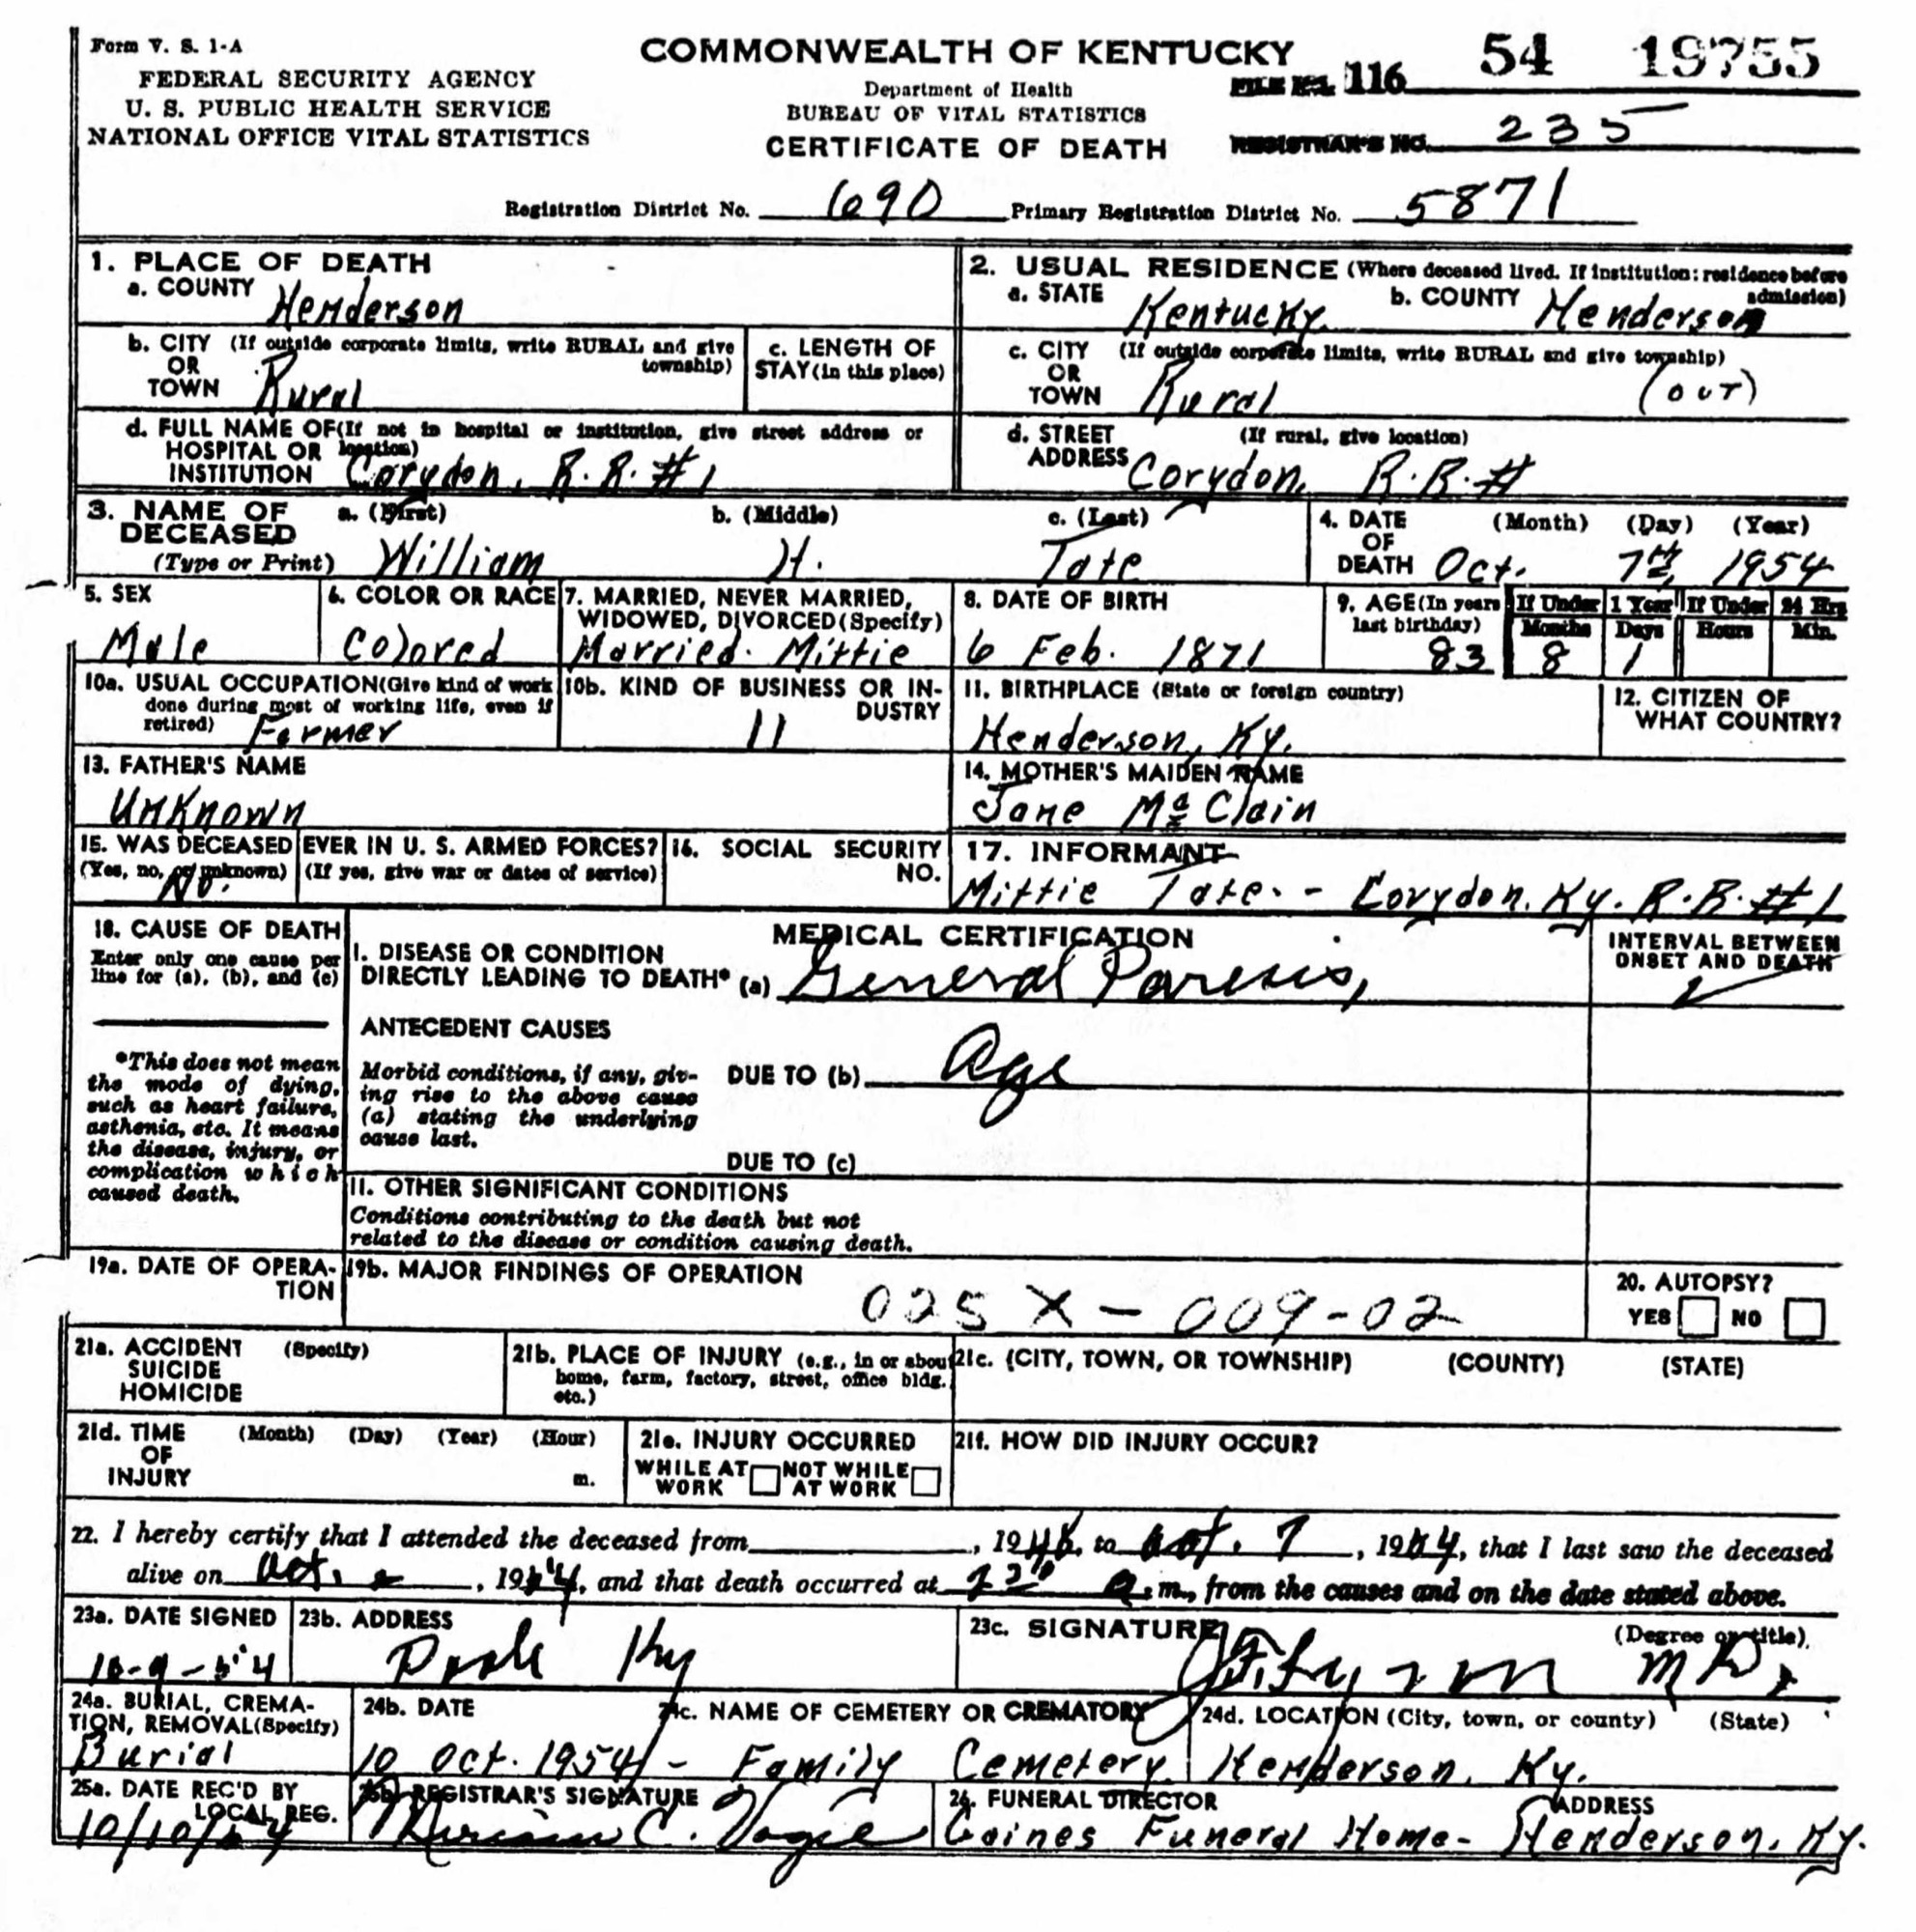 Form V. S. 1-A
FEDERAL SECURITY AGENCY
U. S. PUBLIC HEALTH SERVICE
NATIONAL OFFICE VITAL STATISTICS
COMMONWEALTH OF KENTUCKY
Department of Health
BUREAU OF VITAL STATISTICS
CERTIFICATE OF DEATH
FILE NO. 116 54 19755
REGISTRAR'S NO. 235
Registration District No. 690 Primary Registration District No. 5871
1. PLACE OF DEATH
a. COUNTY Henderson
2. USUAL RESIDENCE (Where deceased lived. If institution: residence before admission)
a. STATE Kentucky b. COUNTY Henderson
b. CITY OR TOWN (If outside corporate limits, write RURAL and give township) Rural
c. LENGTH OF STAY (in this place)
c. CITY OR TOWN (If outside corporate limits, write RURAL and give township) Rural (out)
d. FULL NAME OF HOSPITAL OR INSTITUTION (If not in hospital or institution, give street address or location) Corydon, R.R. #1
d. STREET ADDRESS (If rural, give location) Corydon, R.R. #
3. NAME OF DECEASED (Type or Print)
a. (First) William b. (Middle) H. c. (Last) Tate
4. DATE OF DEATH (Month) (Day) (Year) Oct. 7th, 1954
5. SEX Male
6. COLOR OR RACE Colored
7. MARRIED, NEVER MARRIED, WIDOWED, DIVORCED (Specify) Married. Mittie
8. DATE OF BIRTH 6 Feb. 1871
9. AGE (In years last birthday) 83
If Under 1 Year Months 8 Days 1
If Under 24 Hrs Hours Min.
10a. USUAL OCCUPATION (Give kind of work done during most of working life, even if retired) Farmer
10b. KIND OF BUSINESS OR INDUSTRY 11
11. BIRTHPLACE (State or foreign country) Henderson, Ky.
12. CITIZEN OF WHAT COUNTRY?
13. FATHER'S NAME
Unknown
14. MOTHER'S MAIDEN NAME
Jane Mc Clain
15. WAS DECEASED EVER IN U. S. ARMED FORCES?
(Yes, no, or unknown) (If yes, give war or dates of service) No.
16. SOCIAL SECURITY NO.
17. INFORMANT
Mittie Tate. - Corydon, Ky. R.R. #1
18. CAUSE OF DEATH
Enter only one cause per line for (a), (b), and (c)
*This does not mean the mode of dying, such as heart failure, asthenia, etc. It means the disease, injury, or complication which caused death.
MEDICAL CERTIFICATION
INTERVAL BETWEEN ONSET AND DEATH
I. DISEASE OR CONDITION DIRECTLY LEADING TO DEATH* (a) General Paresis,
ANTECEDENT CAUSES
Morbid conditions, if any, giving rise to the above cause (a) stating the underlying cause last.
DUE TO (b) Age
DUE TO (c)
II. OTHER SIGNIFICANT CONDITIONS
Conditions contributing to the death but not related to the disease or condition causing death.
19a. DATE OF OPERATION
19b. MAJOR FINDINGS OF OPERATION
025 X - 009-02
20. AUTOPSY?
YES NO
21a. ACCIDENT SUICIDE HOMICIDE (Specify)
21b. PLACE OF INJURY (e.g., in or about home, farm, factory, street, office bldg. etc.)
21c. (CITY, TOWN, OR TOWNSHIP) (COUNTY) (STATE)
21d. TIME OF INJURY (Month) (Day) (Year) (Hour) m.
21e. INJURY OCCURRED
WHILE AT WORK NOT WHILE AT WORK
21f. HOW DID INJURY OCCUR?
22. I hereby certify that I attended the deceased from , 1946, to Oct. 7, 1954, that I last saw the deceased
alive on Oct. , 1954, and that death occurred at a.m., from the causes and on the date stated above.
23a. DATE SIGNED 10-9-54
23b. ADDRESS Poole Ky
23c. SIGNATURE (Degree or title) M.D.
24a. BURIAL, CREMATION, REMOVAL (Specify) Burial
24b. DATE 10 Oct. 1954 -
24c. NAME OF CEMETERY OR CREMATORY Family Cemetery
24d. LOCATION (City, town, or county) (State) Henderson, Ky.
25a. DATE REC'D BY LOCAL REG. 10/10/54
25b. REGISTRAR'S SIGNATURE C.
26. FUNERAL DIRECTOR ADDRESS
Gaines Funeral Home - Henderson, Ky.